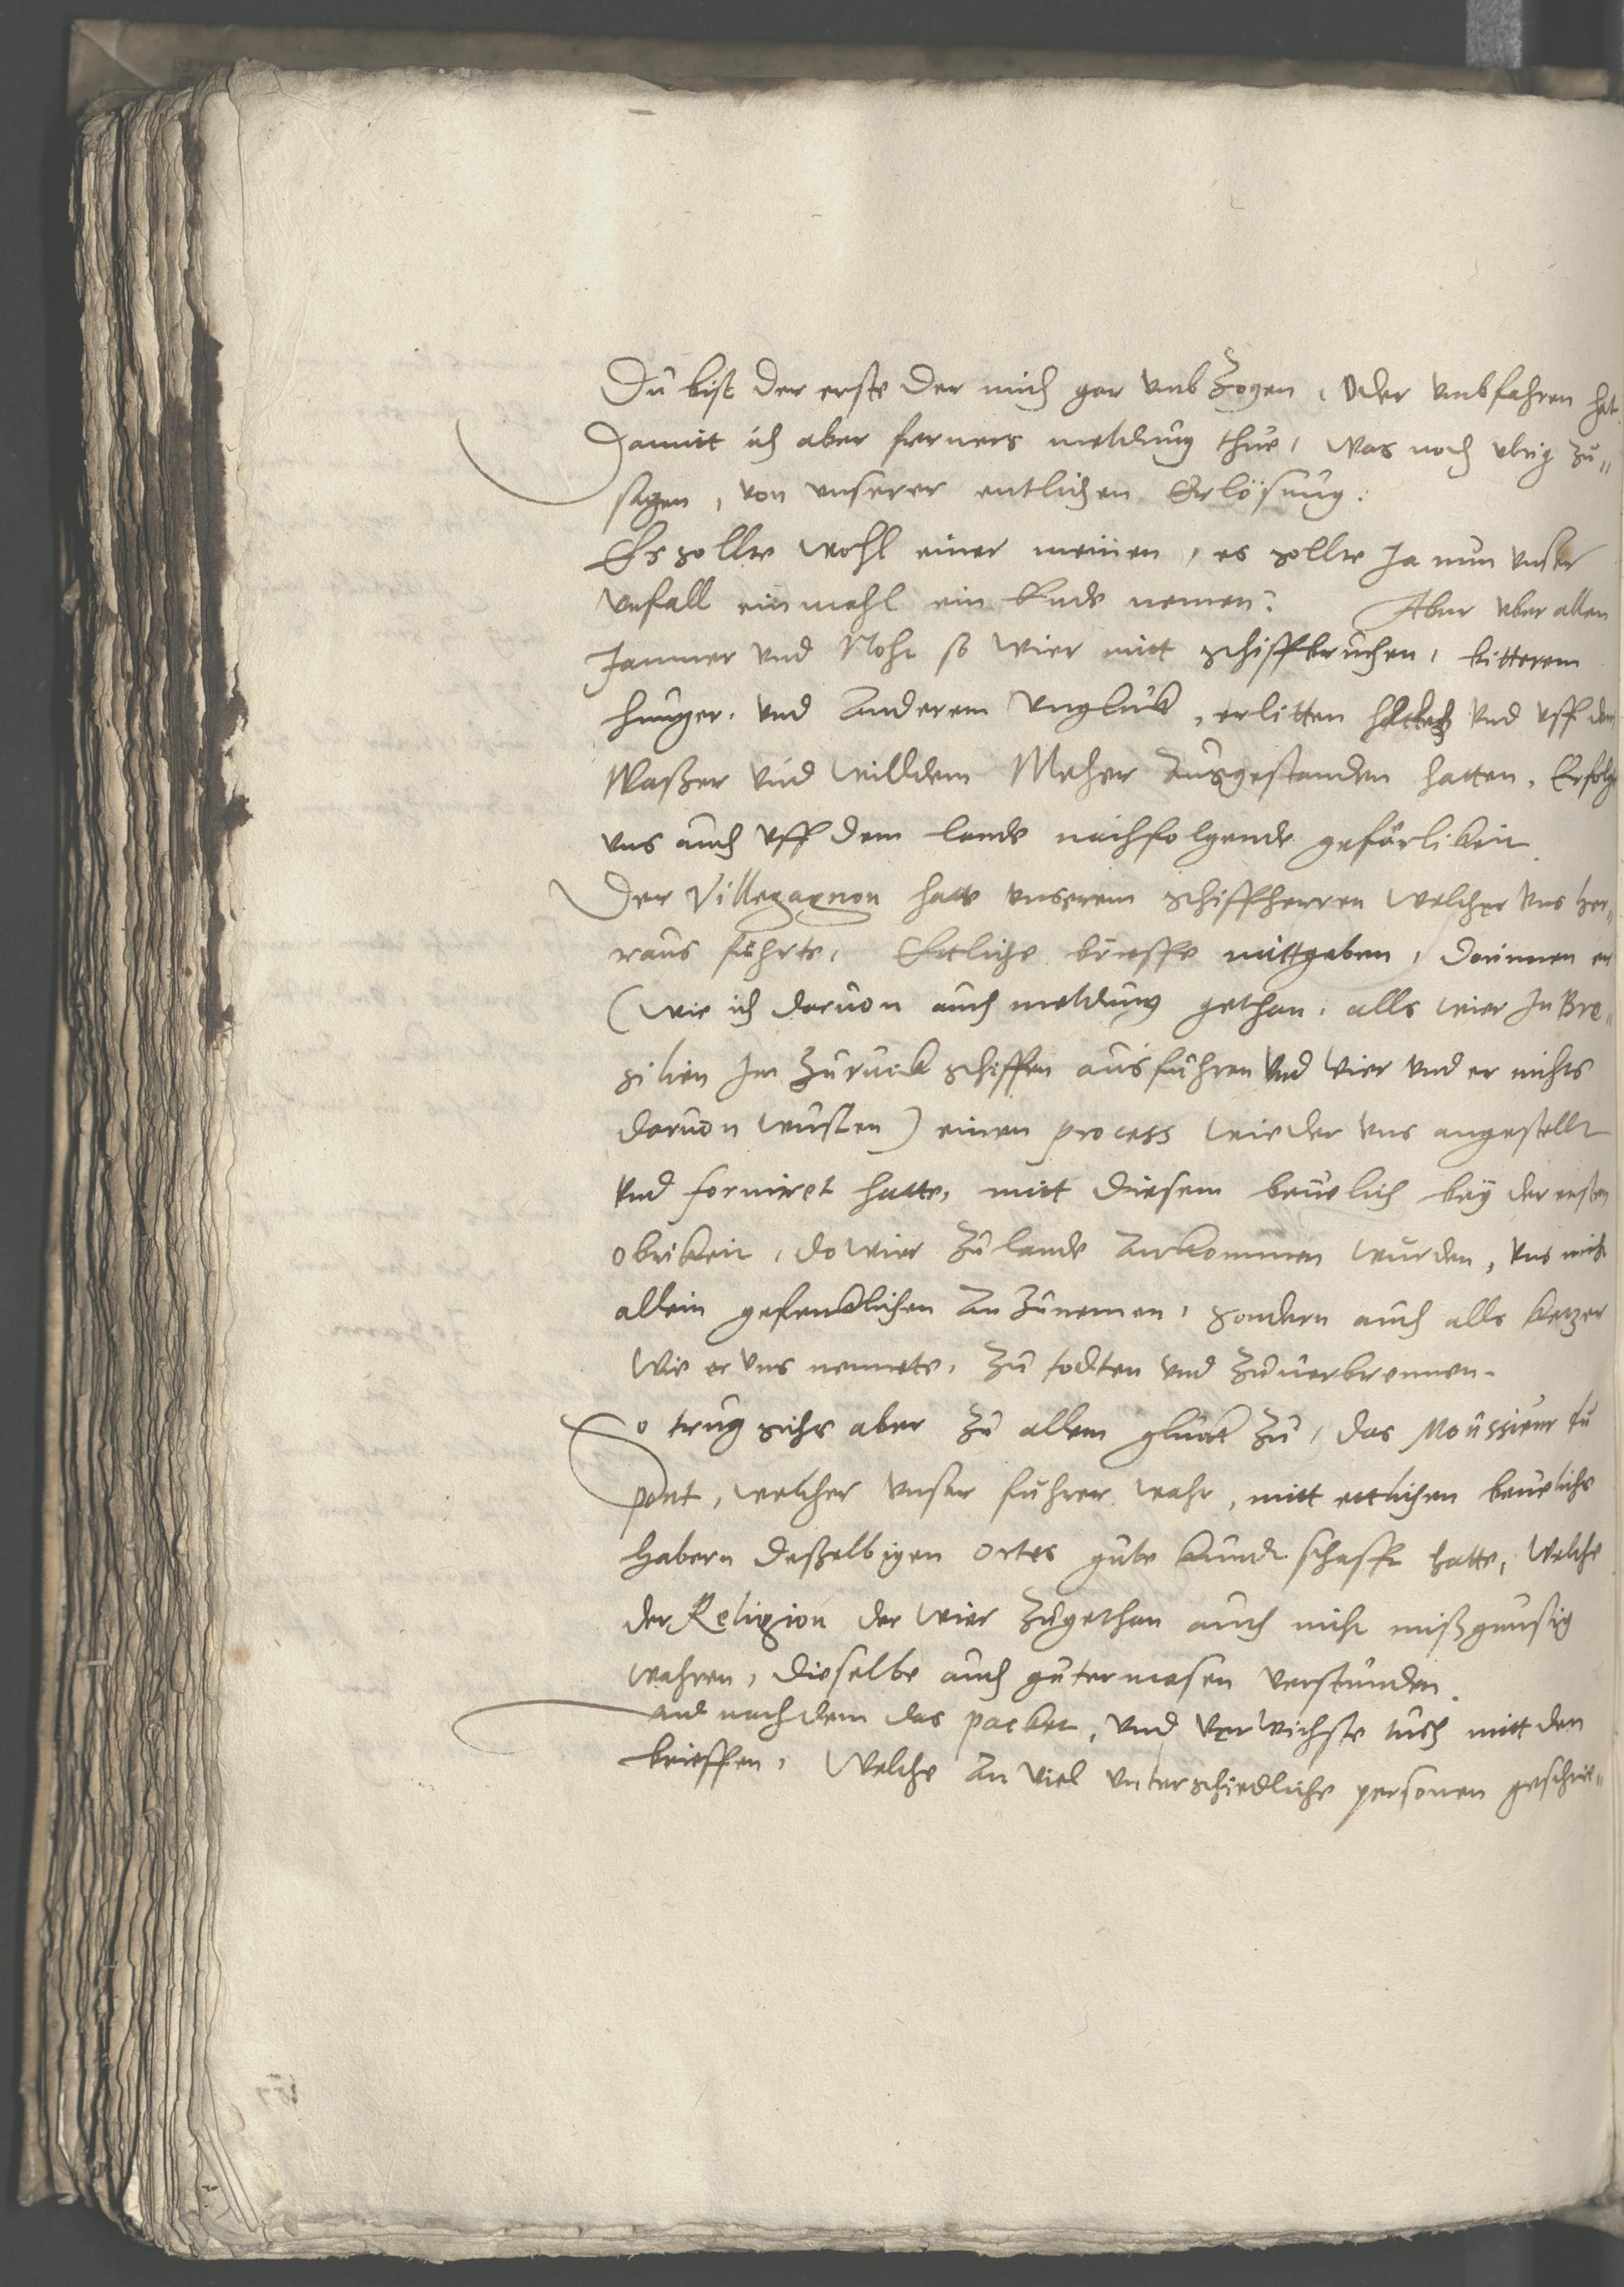 Du bist der erste der mich gar vmbZogen, oder vmbfahren hat
Damit ich aber ferners meldung thue, was noch vbrig zu„
sagen, von vnserer entlichen Erlösung.
Es sollte wohl einer meinen, es sollte Ja nun vnser
vnfall ein mahl ein Ende nemen? Aber vber allen
Jammer vnd Noht so wier mitt schiffbruchen, bitterem
hunger, vnd Anderem Vngluck, erlitten vnd vff dem
Waßer vnd willdem Meher Ausgestanden hatten, Erfolgt
vns auch vff dem lande nachfolgende gefärlikeit.
Der Villegagnon hatt vnserem schiffherren welcher vns her„
raus führte, Ettliche brieffe mittgeben, darinnen er
(wie ich daruon auch meldung gethan, alls wier In Bre„
silien Im Zuruck schiffen aus führen vnd wier vnd er nichts
daruon wusten) einen process wieder vns angestellt
vnd formiret hatte, mitt diesem beuelich beÿ der ersten
obrikeit, do wier Zu lande Ankommen würden, vns nicht
allein gefencklichen An Zunemen, sondern auch alls ketzer
wie er vns nennete, Zu todten vnd Zuuerbrennen.
So trug sichs aber Zu allem gluck Zu, das Moussieur du
pont, welcher vnser führer wahr, mitt ettlichen beuelichs
habern deßelbigen ortes gute kundtschafft hatte, welche
der Religion der wier Zugethan auch nicht mißgunstig
wahren, dieselbe auch gutermasen verstunden.
Vnd nach dem das packet, vnd verwichste tuch mitt den
brieffen, Welche An viel vnterschiedliche personen geschrie„